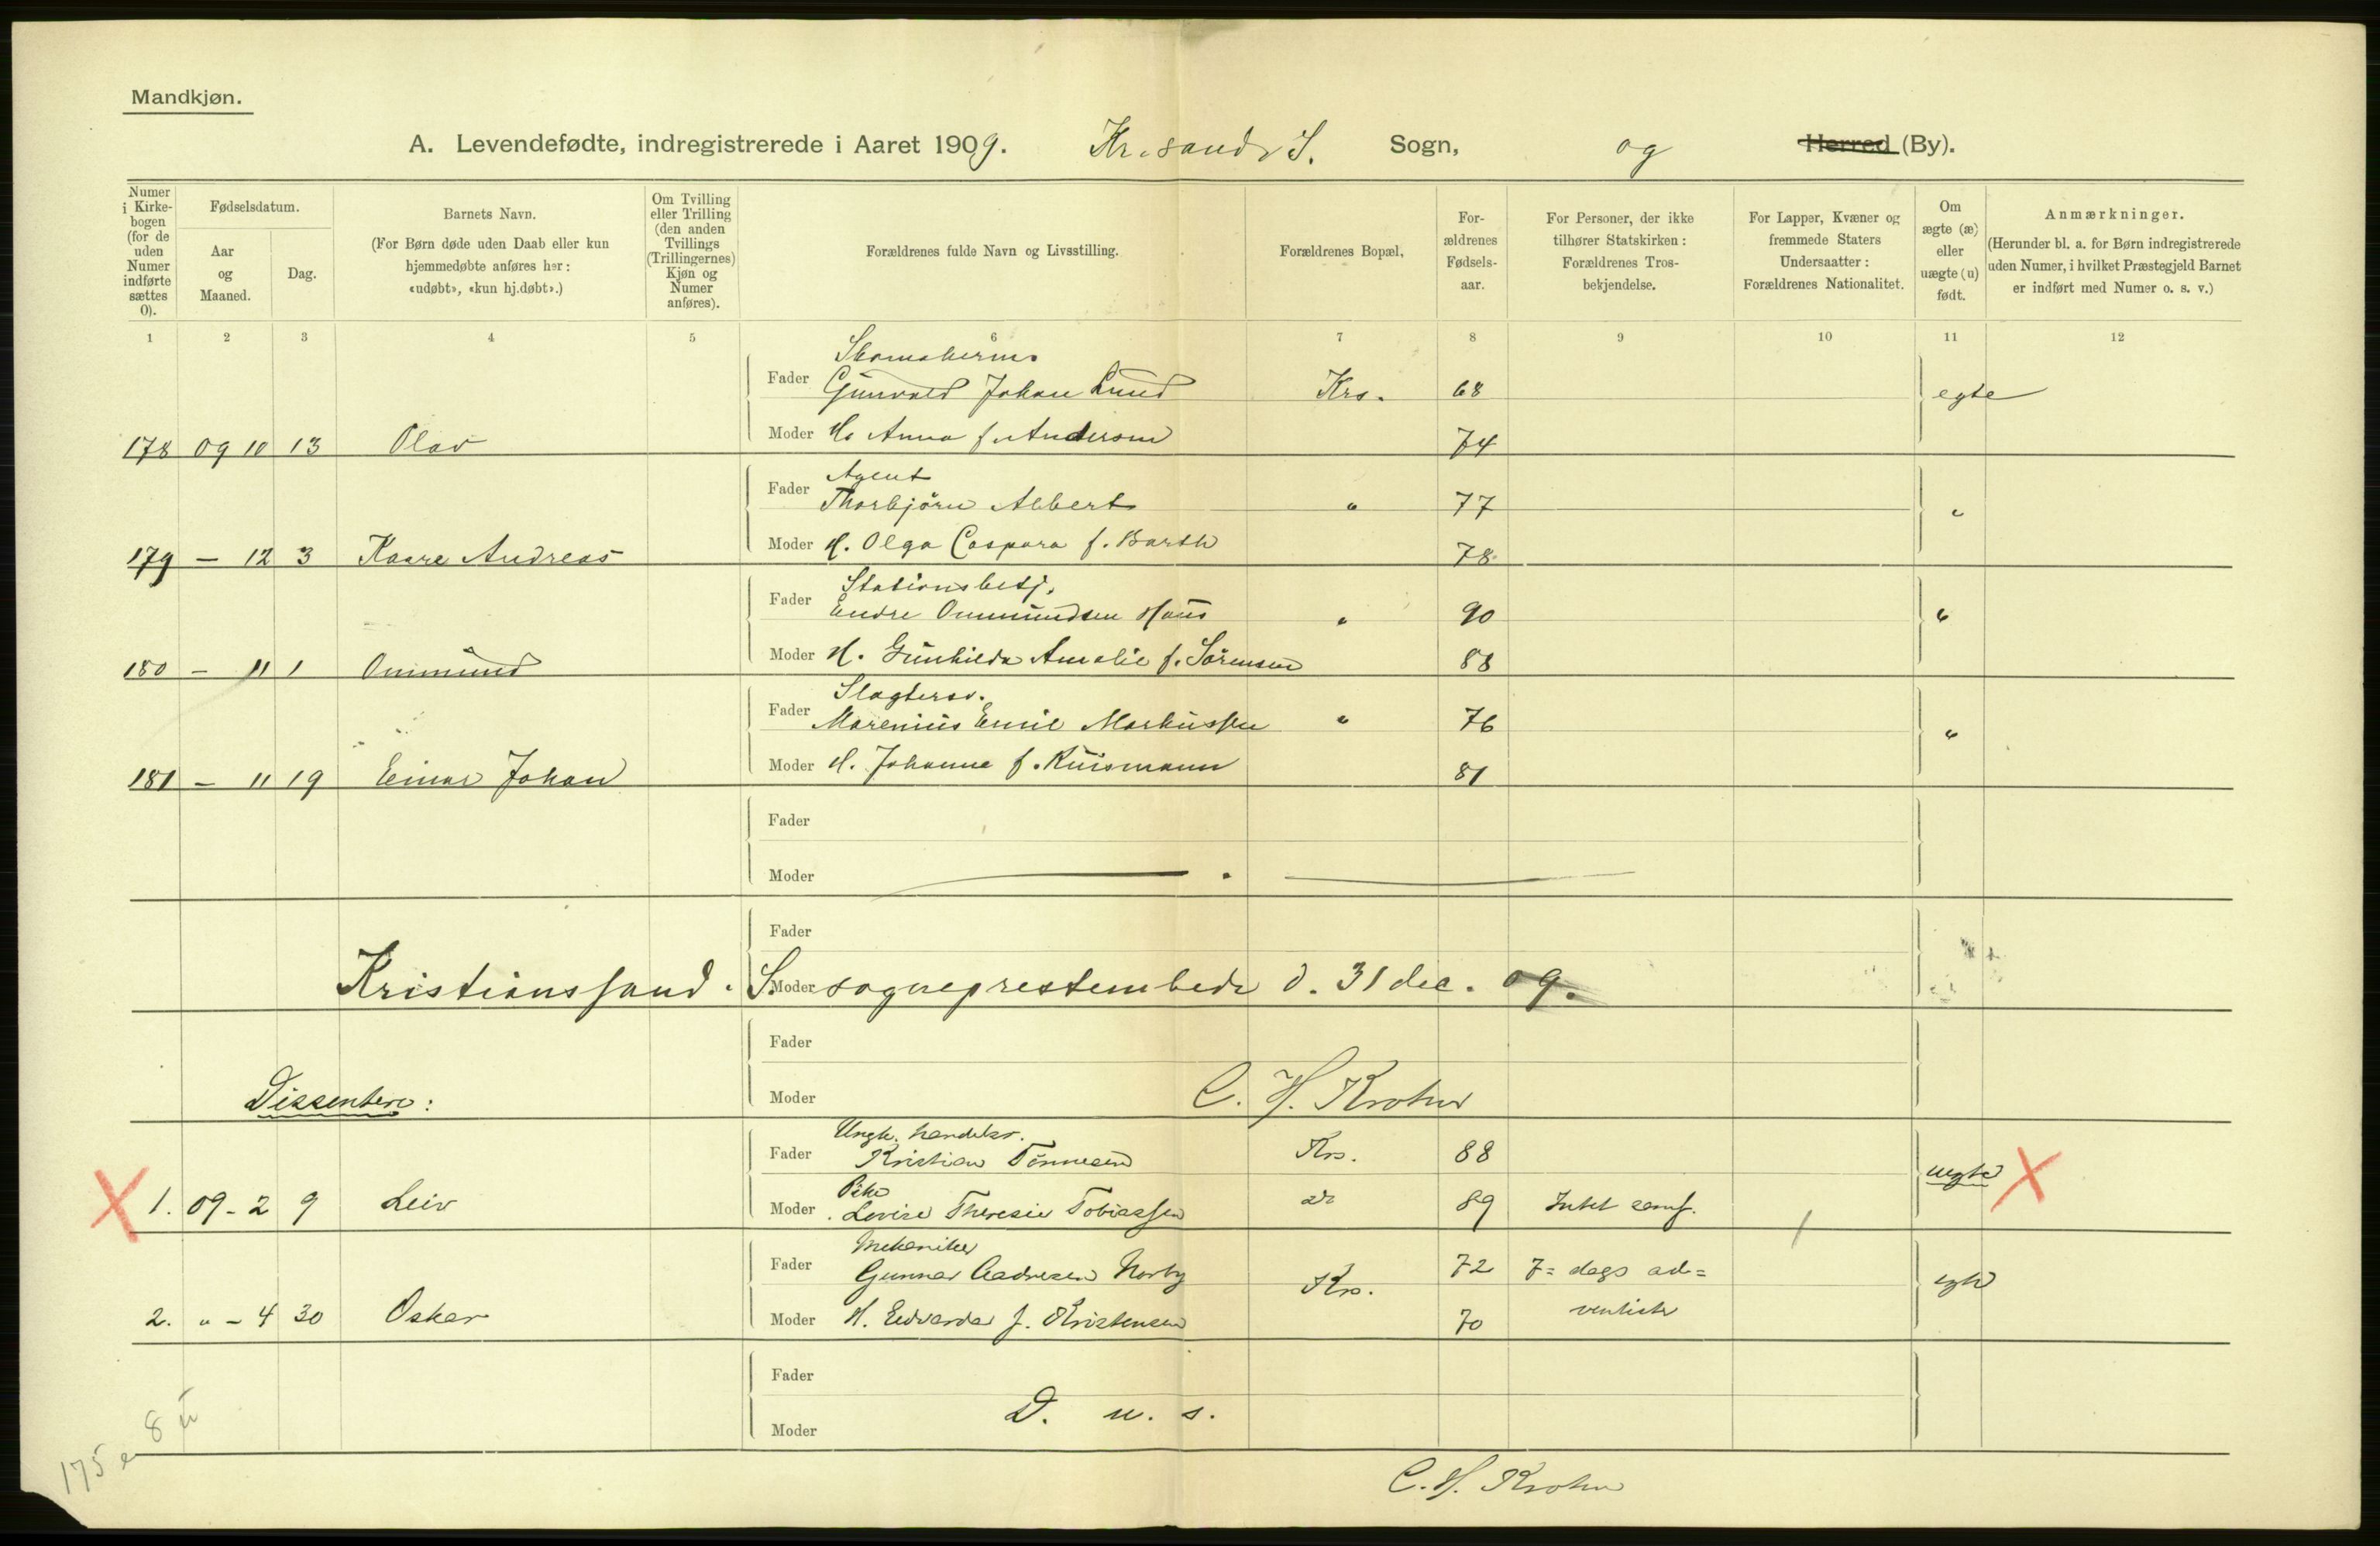 Mandkjøn.
A. Levendefødte, indregistrerede i Aaret 1909. Kr.sands S. Sogn, og Herred (By).
Numer i Kirkebogen (for de uden Numer indførte sættes 0).
Fødselsdatum.
Aar og Maaned.
Dag.
Barnets Navn.
(For Børn døde uden Daab eller kun hjemmedøbte anføres her: «udøbt», «kun hj.døbt».)
Om Tvilling eller Trilling (den anden Tvillings (Trillingernes) Kjøn og Numer anføres).
Forældrenes fulde Navn og Livsstilling.
Forældrenes Bopæl,
Forældrenes Fødselsaar.
For Personer, der ikke tilhører Statskirken: Forældrenes Trosbekjendelse.
For Lapper, Kvæner og fremmede Staters Undersaatter: Forældrenes Nationalitet.
Om ægte (æ) eller uægte (u) født.
Anmærkninger.
(Herunder bl. a. for Børn indregistrerede uden Numer, i hvilket Præstegjeld Barnet er indført med Numer o. s. v.)
1 2 3 4 5 6 7 8 9 10 11 12
Skomakerm.
Fader Gunvald Johan Lund Krs. 68 egte
178 09 10 13 Olav Moder H. Anna f. Andersen 74
Agent
Fader Thorbjørn Abbert " 77 "
179 – 12 3 Kaare Andreas Moder H. Olga Caspara f. Barth 78
Stationsbetj.
Fader Endre Ommundsen Haus " 90 "
180 – 11 1 Ommund Moder H. Gunhilda Amalie f. Sørensen 88
Slagtersv.
Fader Marenius Emil Markussen " 76 "
181 – 11 19 Einar Johan Moder H. Johanne f. Kuismann 81
Fader
Moder
Fader
Kristianssand. S. Moder sogneprestembede d. 31 dec. 09.
Fader
Dissentere: Moder C. H. Krohn
Ungk. handelsr.
Fader Kristian Tönnesen Krs. 88 uegte
Pike
1. 09 - 2 9 Leiv Moder Lovise Theresie Tobiassen do 89 Intet samf.
Mekaniker
Fader Gunnar Aadnesen Norby Krs. 72 7= dags ad= egte
2. " - 4 30 Oskar Moder H. Edvarda f. Kristensen 70 ventister
Fader
Moder D. u. s.
8 u
175 e
C. H. Krohn